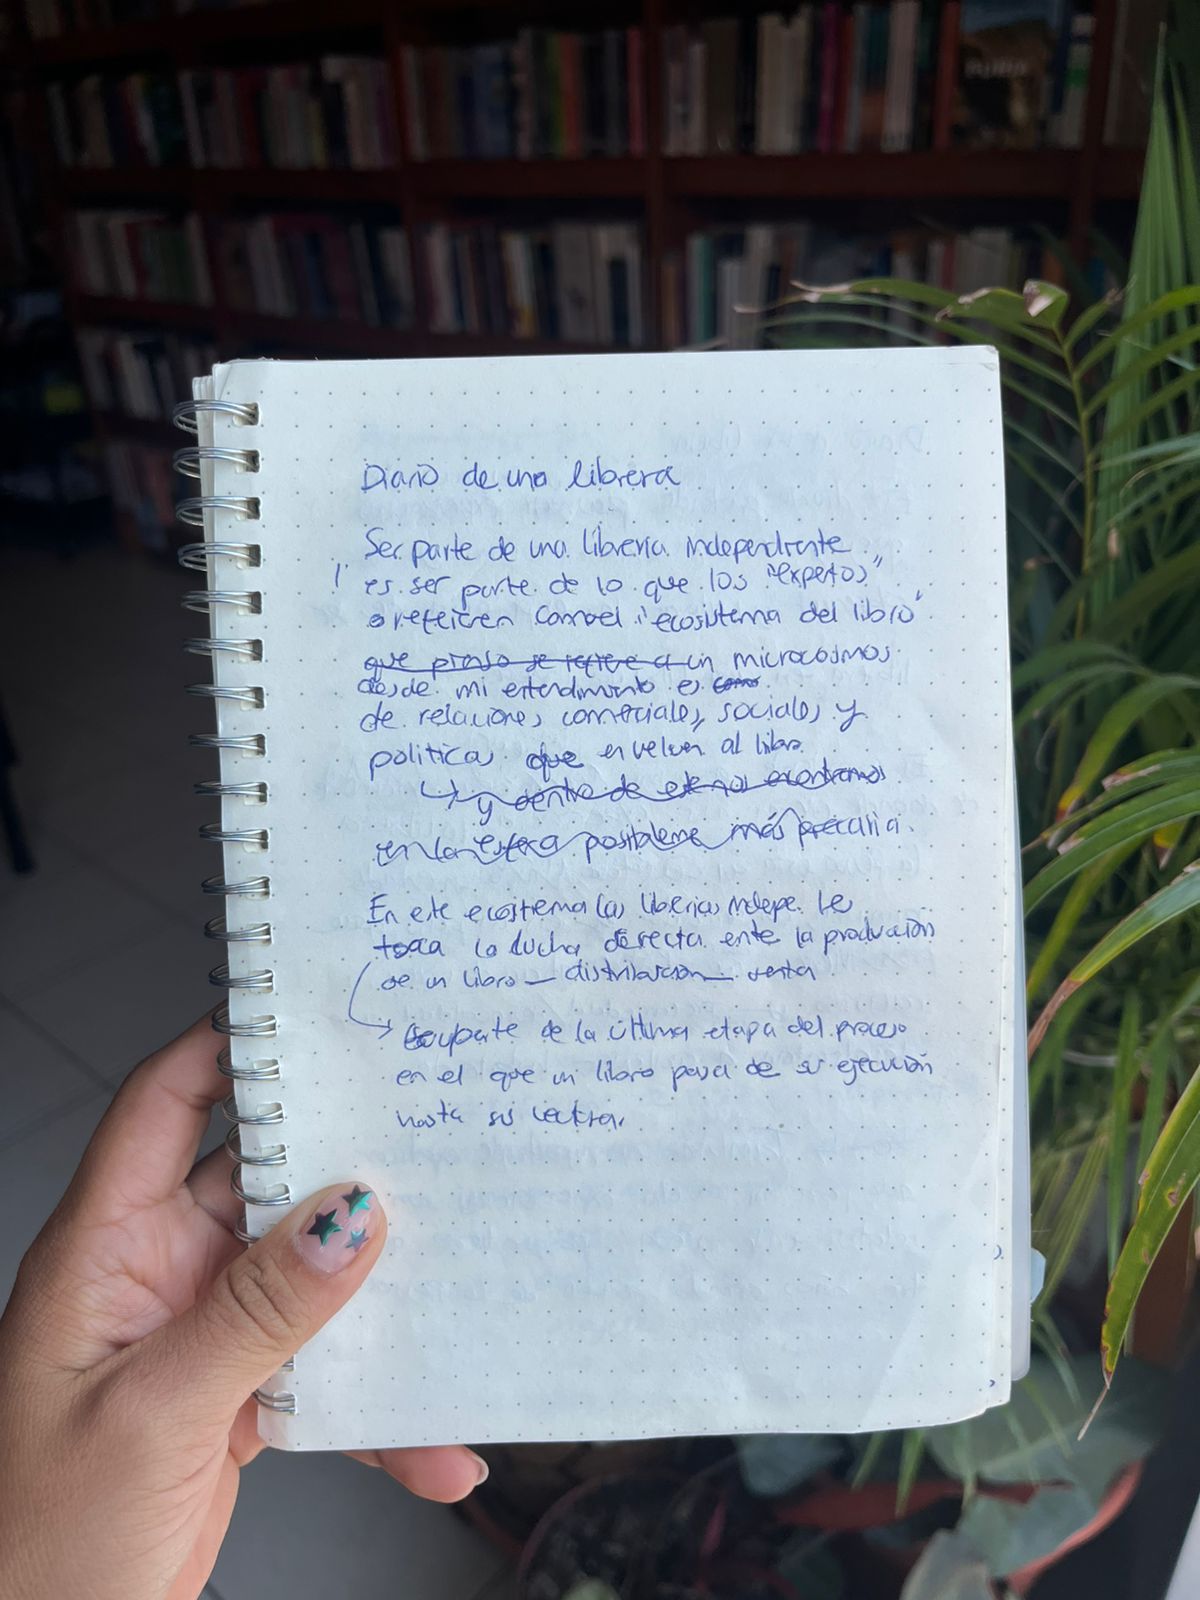 Diario de una librera
Ser parte de una librería independiente
es ser parte de lo que los "expertos"
refieren como el "ecosistema del libro"
que pienso se refiere a un microcosmos
desde mi entendimiento es como
de relaciones comerciales, sociales y
políticas que envuelven al libro.
y dentro de este nos encontramos
en la esfera posiblemente más precaria.
En este ecosistema las librerías indepe. les
toca la lucha directa ente la producción
de un libro — distribución — venta
parte de la última etapa del proceso
en el que un libro pasa de su ejecución
hasta su lectura.